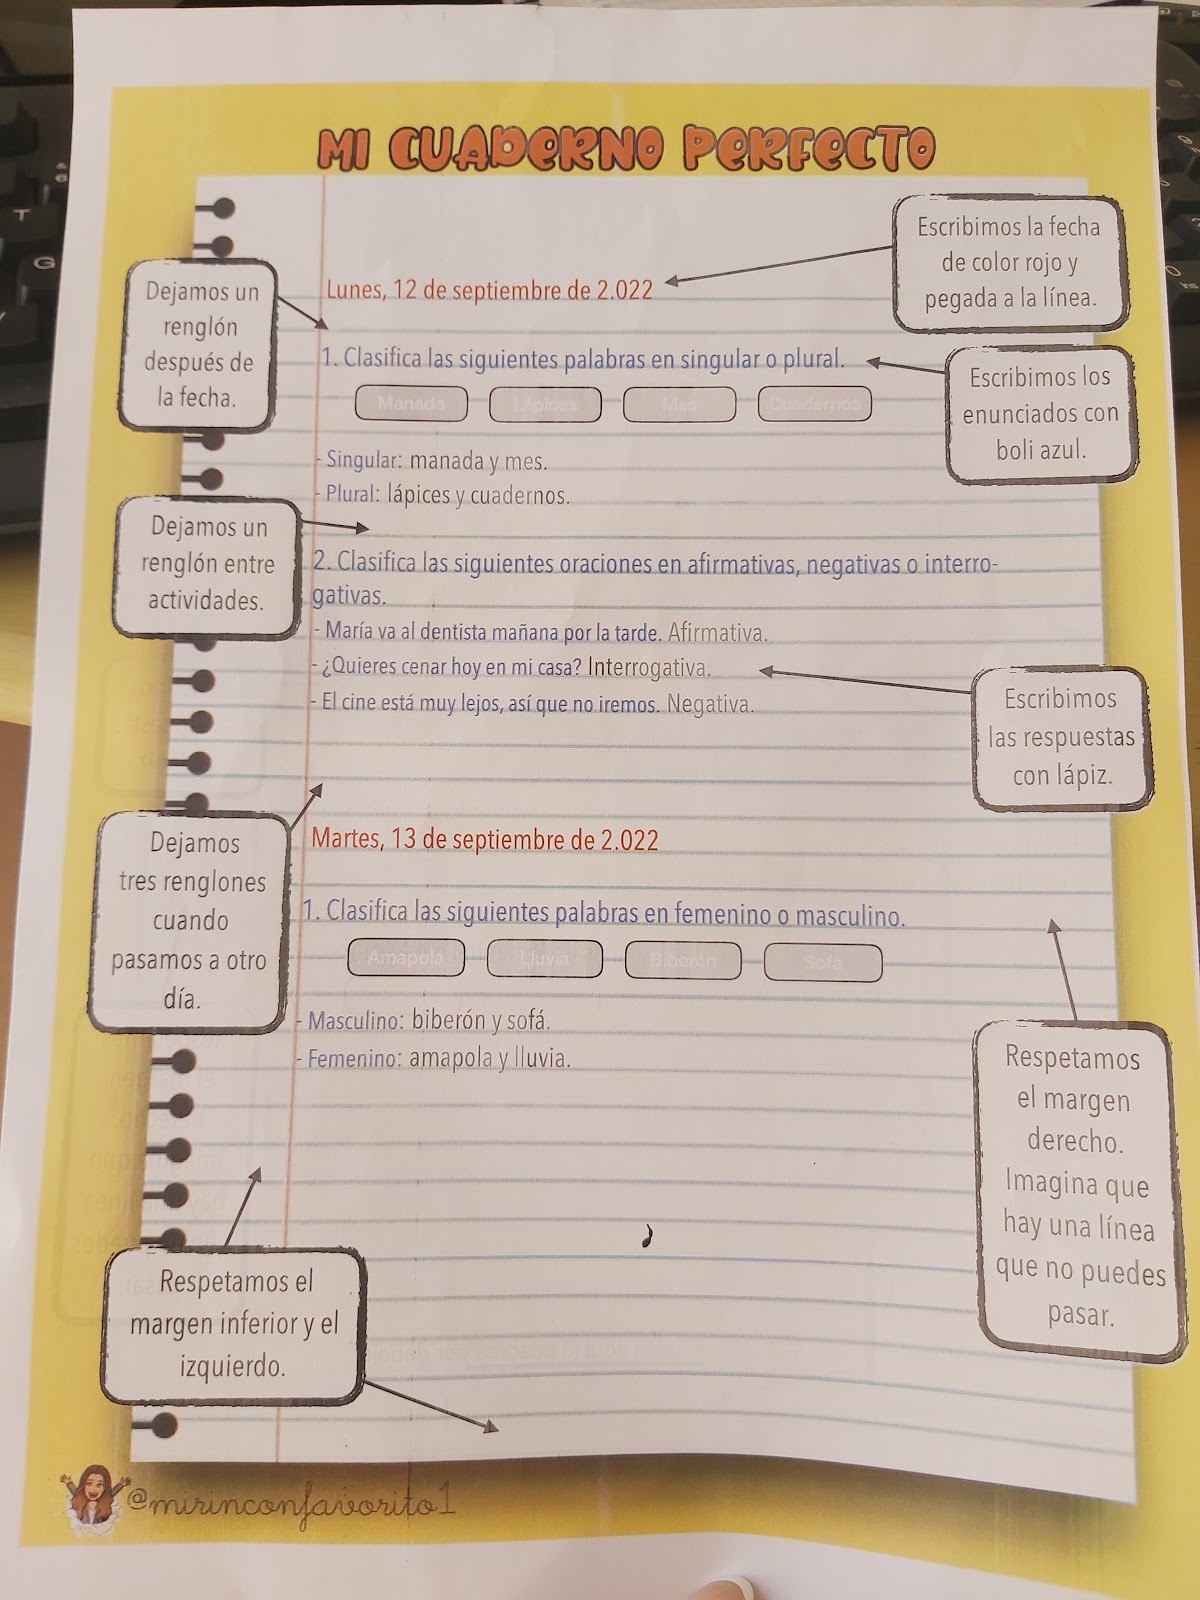 MI CUADERNO PERFECTO
Escribimos la fecha
de color rojo y
pegada a la línea.
Lunes, 12 de septiembre de 2.022
Dejamos un
renglón
después de
la fecha.
1. Clasifica las siguientes palabras en singular o plural.
Manada Lápices Mes Cuadernos
Escribimos los
enunciados con
boli azul.
- Singular: manada y mes.
- Plural: lápices y cuadernos.
Dejamos un
renglón entre
actividades.
2. Clasifica las siguientes oraciones en afirmativas, negativas o interro-
gativas.
- María va al dentista mañana por la tarde. Afirmativa.
- ¿Quieres cenar hoy en mi casa? Interrogativa.
- El cine está muy lejos, así que no iremos. Negativa.
Escribimos
las respuestas
con lápiz.
Dejamos
tres renglones
cuando
pasamos a otro
día.
Martes, 13 de septiembre de 2.022
1. Clasifica las siguientes palabras en femenino o masculino.
Amapola Lluvia Biberón Sofá
- Masculino: biberón y sofá.
- Femenino: amapola y lluvia.
Respetamos
el margen
derecho.
Imagina que
hay una línea
que no puedes
pasar.
Respetamos el
margen inferior y el
izquierdo.
@mirinconfavorito1